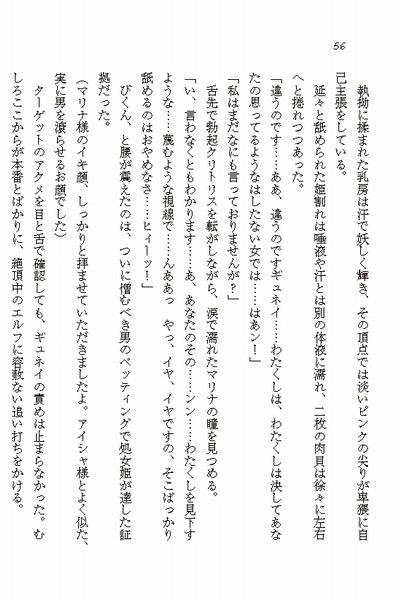 56
執拗に揉まれた乳房は汗で妖しく輝き、その頂点では淡いピンクの尖りが卑猥に自
己主張をしている。
延々と舐められた姫割れは唾液や汗とは別の体液に濡れ、二枚の肉貝は徐々に左右
へと捲れつつあった。
「違うのです……ああ、違うのですギュネイ……わたくしは、わたくしは決してあな
たの思ってるようなはしたない女では……はあン！」
「私はまだなにも言っておりませんが？」
舌先で勃起クリトリスを転がしながら、涙で濡れたマリナの瞳を見つめる。
「い、言わなくともわかります……あ、あなたのその……ンン……わたくしを見下す
ような……蔑むような視線で……んああっ　やっ、イヤ、イヤですの、そこばっかり
舐めるのはおやめなさ……ヒィーッ！」
びくん、と腰が震えたのは、ついに憎むべき男のペッティングで処女姫が達した証
拠だった。
（マリナ様のイキ顔、しっかりと拝ませていただきましたよ。アイシャ様とよく似た、
実に男を滾らせるお顔でした）
ターゲットのアクメを目と舌で確認しても、ギュネイの責めは止まらなかった。む
しろここからが本番とばかりに、絶頂中のエルフに容赦ない追い打ちをかける。